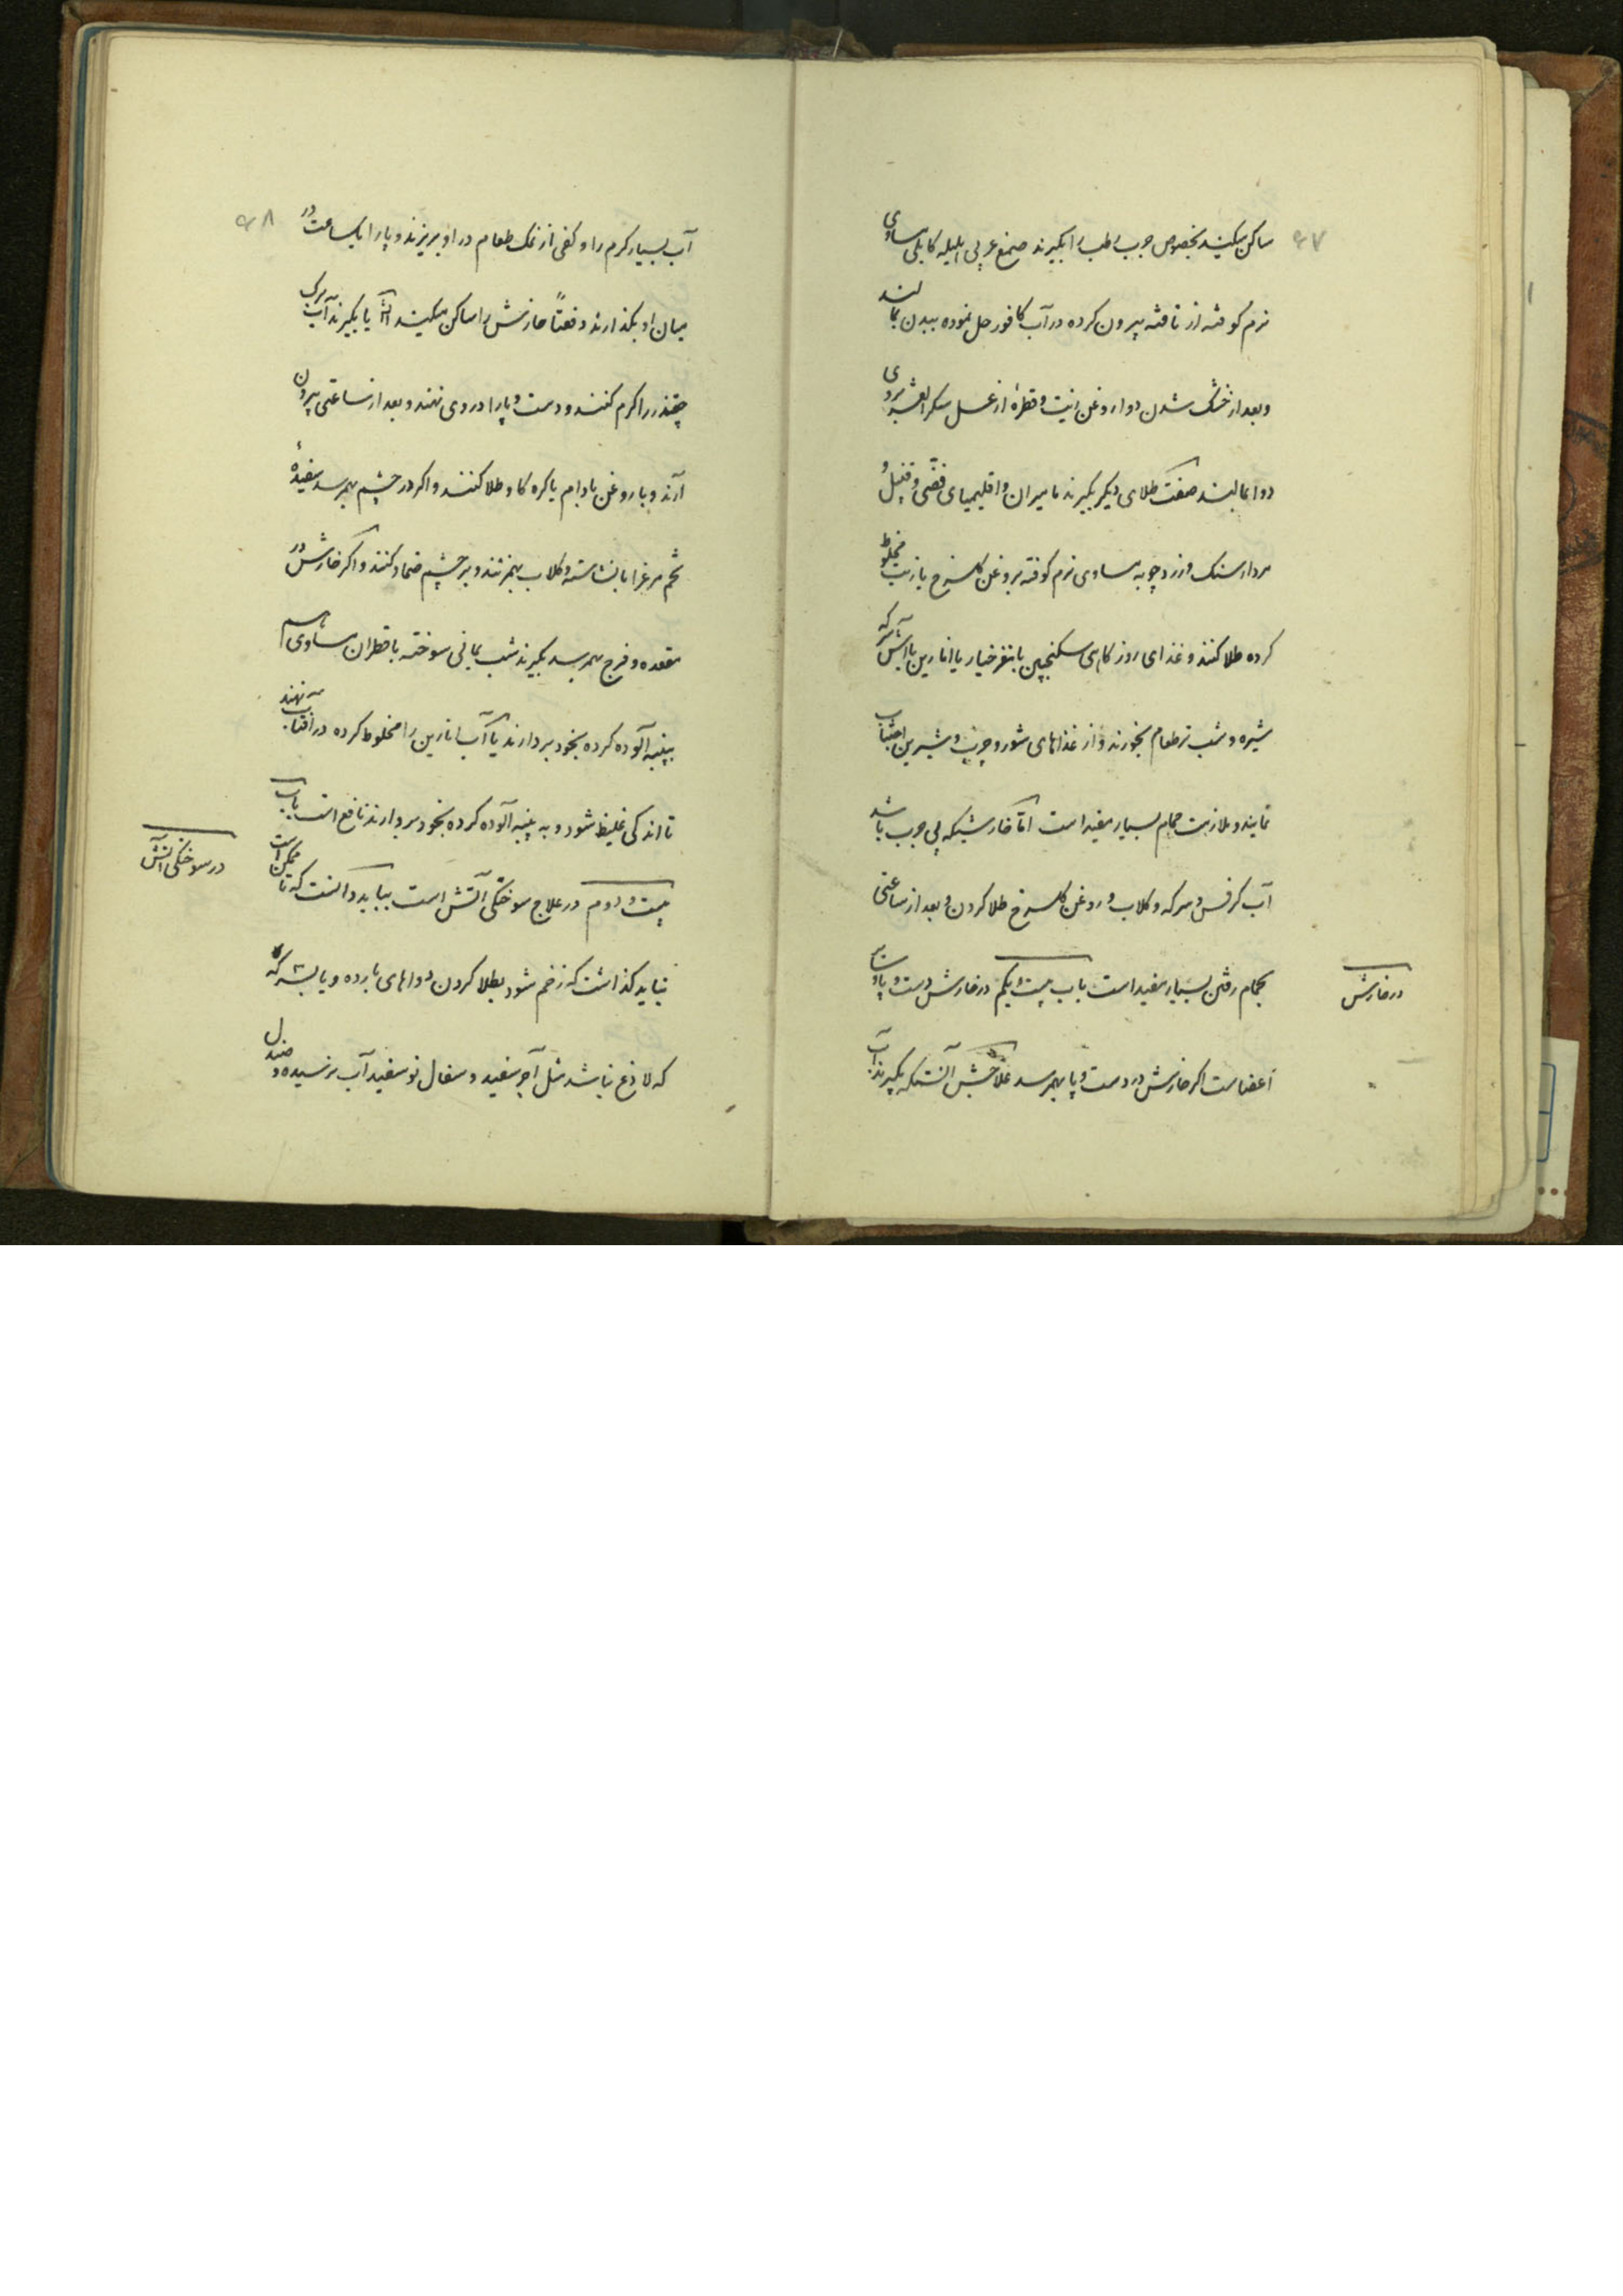 ۶۷
ساکن میکند بخصوص جرب رطب را بگیرند صمغ عربی هلیله کابلی مساوی
نرم کوفته از تافته بیرون کرده در آب کافور حل نموده ببدن بمالند
و بعد از خشک شدن دوا روغن و قطرهٔ از عسل
دوا بمالند صفت طلای دیگر بگیرند مامیران و اقلیمیای فضی و
مردارسنک و زردچوبه مساوی نرم کوفته بروغن کلسرخ یا زیت مخلوط
کرده طلا کنند و غذای روز کاهی سکنجبین با مغز خیار یا انارین یا آش سرکه
شیره و شب نرطعام بخورند و از غذاهای شور و چرب و شیرین اجتناب
نمایند و ملازمت حمام بسیار مفید است امّا خارشیکه بی جرب باشد
آب کرفس و سرکه و کلاب و روغن کلسرخ طلا کردن و بعد از ساعتی
بحمام رفتن بسیار مفید است باب بیست و یکم در خارش دست و پا و سایر
در خارش
اعضاست اکر خارش در دست و پا بهمرسد علاجش آنستکه بگیرند آب
۶۸
آب بسیار کرم را و کفی از نمک طعام در او بریزند و پا را یکساعت در
میان او بکذارند دفعتاً خارش را ساکن میکند یا بگیرند آب برک
چقندر را کرم کنند و دست و پا را در وی نهند و بعد از ساعتی بیرون
آرند و با روغن بادام یا کره کاو طلا کنند و اکر در چشم بهمرسد سفیدهٔ
تخم مرغ را با نشاسته و کلاب بهم زنند و بر چشم ضماد کنند و اکر خارش در
مقعده و فرج بهمرسد بگیرند شب یمانی سوخته با قطران مساوی هم
بپنبه آلوده کرده بخود بردارند یا آب انارین را مخلوط کرده در آفتاب نهند
تا اندکی غلیظ شود و به پنبه آلوده کرده بخود بردارند نافع است باب
بیست و دوم در علاج سوختکی آتش است بباید دانست که تا ممکن است
در سوختکی آتش
نباید کذاشت که زخم شود بطلا کردن دواهای بارده و یابسه که
که لاذع نباشد مثل آجر سفید و سفال نو سفید آب نرسیده و صندل